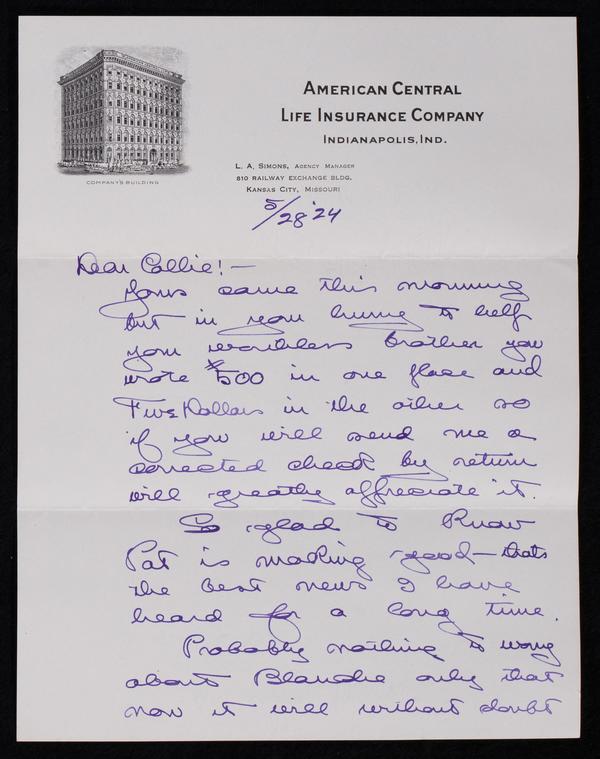 COMPANY'S BUILDING
AMERICAN CENTRAL
LIFE INSURANCE COMPANY
INDIANAPOLIS, IND.
L. A. SIMONS, AGENCY MANAGER
810 RAILWAY EXCHANGE BLDG.
KANSAS CITY, MISSOURI
5/28 '24
Dear Collie! —
Yours came this morning
but in your hurry to help
your worthless brother you
wrote $500 in one place and
Five Dollars in the other so
if you will send me a
corrected check by return
will greatly appreciate it.
So glad to know
Pat is making good — thats
the best news I have
heard for a long time.
Probably nothing to worry
about Blanche only that
now it will without doubt